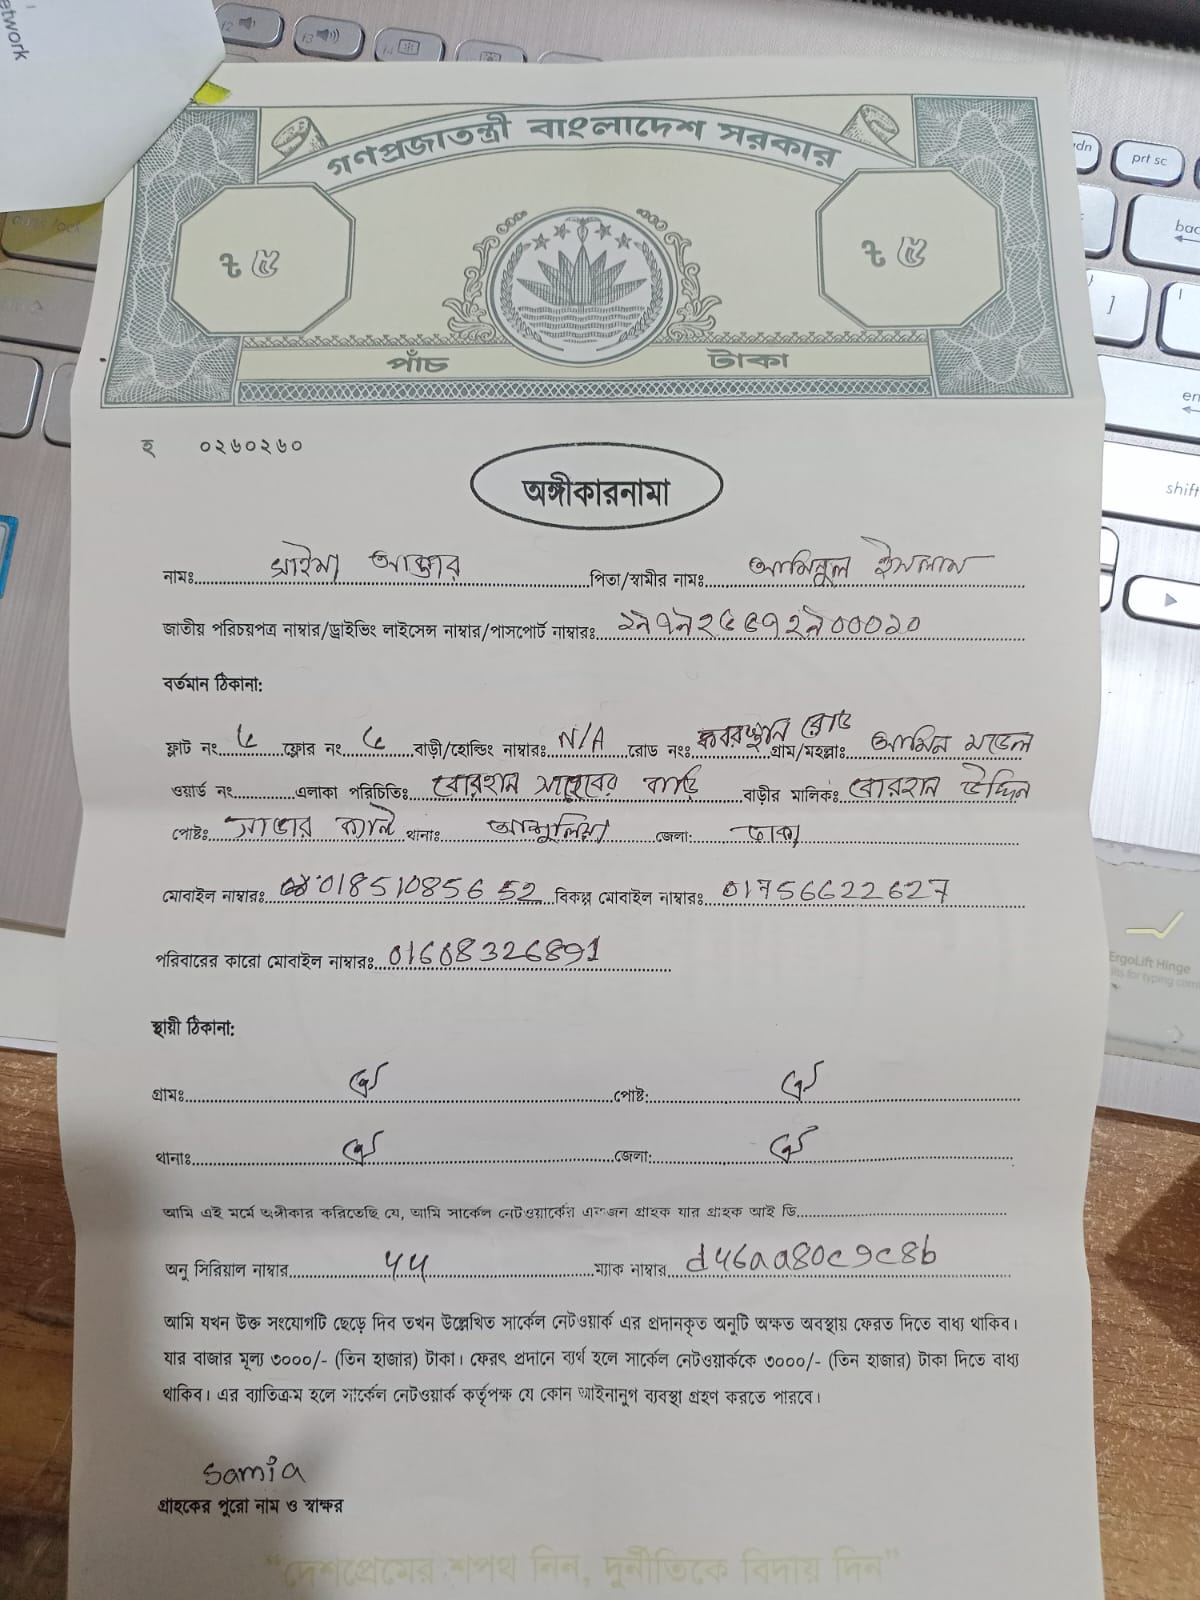 etwork
f2
f3
f4
prt sc
গণপ্রজাতন্ত্রী বাংলাদেশ সরকার
৳ ৫
৳ ৫
পাঁচ টাকা
হ ০২৬০২৬০
অঙ্গীকারনামা
নামঃ সাইমা আক্তার পিতা/স্বামীর নামঃ আমিনুল ইসলাম
জাতীয় পরিচয়পত্র নাম্বার/ড্রাইভিং লাইসেন্স নাম্বার/পাসপোর্ট নাম্বারঃ
বর্তমান ঠিকানা:
ফ্লাট নং ৫ ফ্লোর নং ৫ বাড়ী/হোল্ডিং নাম্বারঃ N/A রোড নংঃ কবরস্থান রোড গ্রাম/মহল্লাঃ আমিন মডেল
ওয়ার্ড নং এলাকা পরিচিতিঃ বোরহান সাহেবের বাড়ি বাড়ীর মালিকঃ বোরহান উদ্দিন
পোষ্টঃ সাভার ক্যান্ট থানাঃ আশুলিয়া জেলা: ঢাকা
মোবাইল নাম্বারঃ 01851085652 বিকল্প মোবাইল নাম্বারঃ 01756622627
পরিবারের কারো মোবাইল নাম্বারঃ 01608326891
স্থায়ী ঠিকানা:
গ্রামঃ ঐ পোষ্ট: ঐ
থানাঃ ঐ জেলা: ঐ
আমি এই মর্মে অঙ্গীকার করিতেছি যে, আমি সার্কেল নেটওয়ার্কের একজন গ্রাহক যার গ্রাহক আই ডি
অনু সিরিয়াল নাম্বার 44 ম্যাক নাম্বার d46aa80c9c8b
আমি যখন উক্ত সংযোগটি ছেড়ে দিব তখন উল্লেখিত সার্কেল নেটওয়ার্ক এর প্রদানকৃত অনুটি অক্ষত অবস্থায় ফেরত দিতে বাধ্য থাকিব।
যার বাজার মূল্য ৩০০০/- (তিন হাজার) টাকা। ফেরৎ প্রদানে ব্যর্থ হলে সার্কেল নেটওয়ার্ককে ৩০০০/- (তিন হাজার) টাকা দিতে বাধ্য
থাকিব। এর ব্যতিক্রম হলে সার্কেল নেটওয়ার্ক কর্তৃপক্ষ যে কোন আইনানুগ ব্যবস্থা গ্রহণ করতে পারবে।
Samia
গ্রাহকের পুরো নাম ও স্বাক্ষর
“দেশপ্রেমের শপথ নিন, দুর্নীতিকে বিদায় দিন”
shift
ErgoLift Hinge